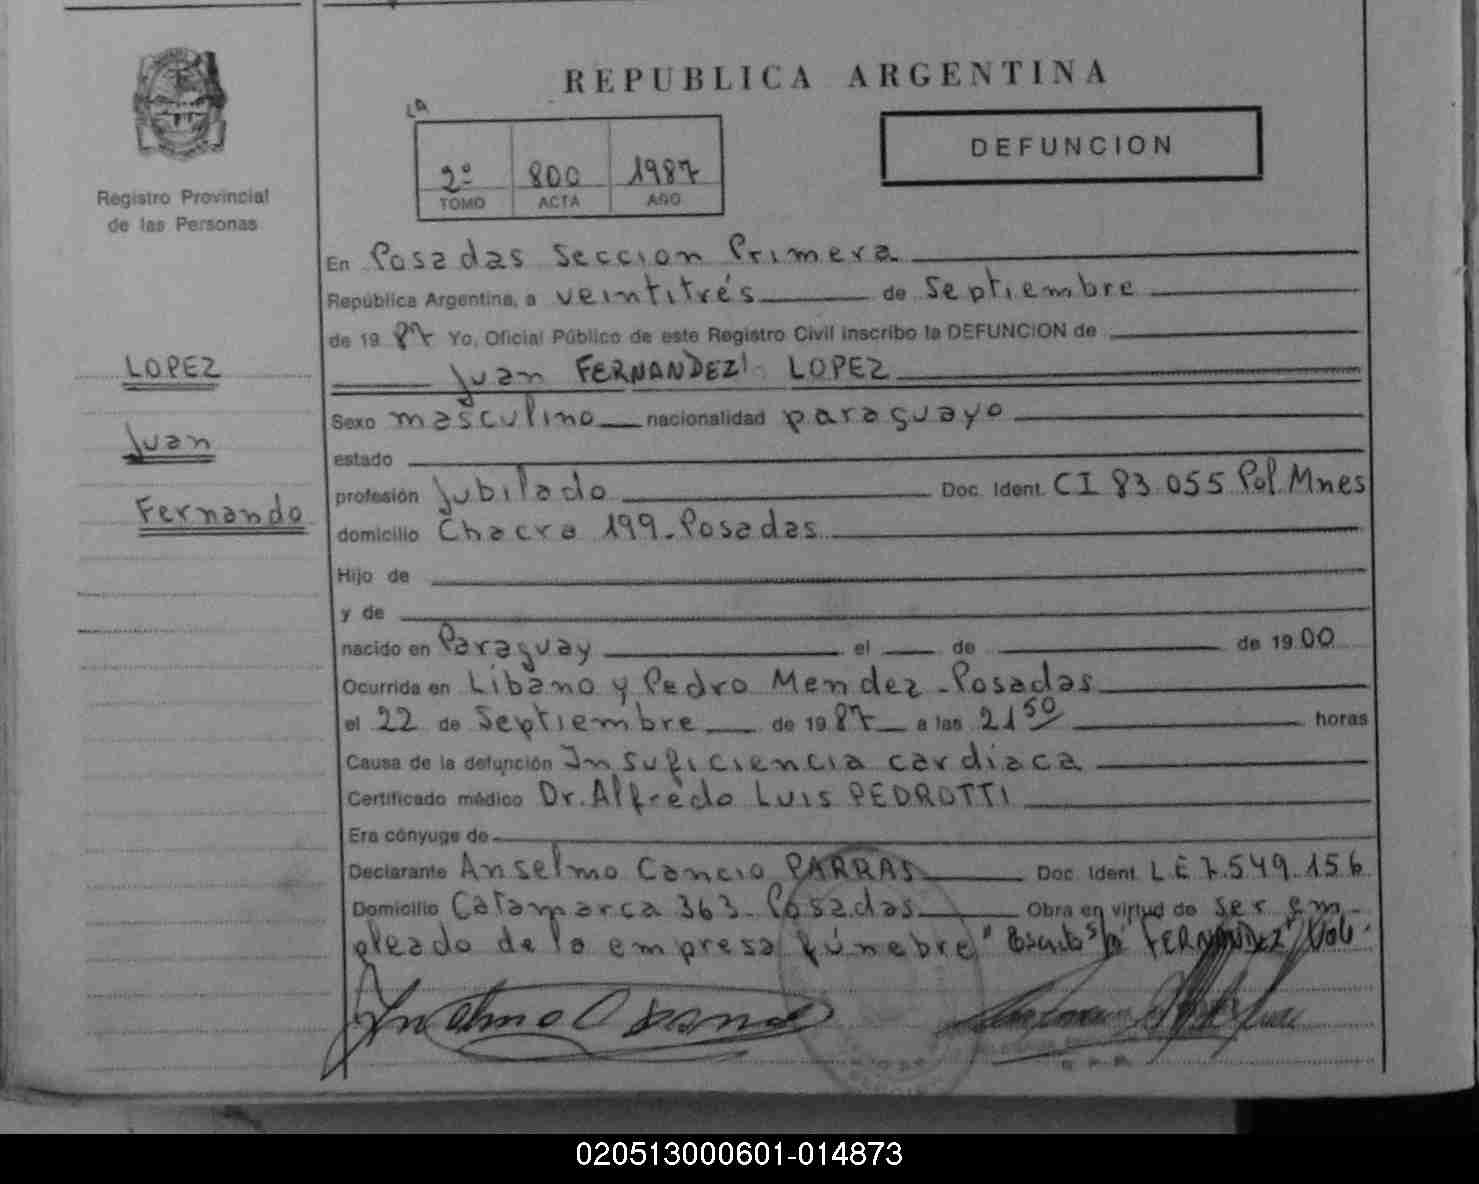 REPUBLICA ARGENTINA
DEFUNCION
Registro Provincial
de las Personas
LOPEZ
Juan
Fernando
1a
2º 800 1987
TOMO ACTA AÑO
En Posadas Seccion Primera
República Argentina, a veintitrés de Septiembre
de 19 87 Yo, Oficial Público de este Registro Civil inscribo la DEFUNCION de
Juan FERNANDEZ LOPEZ
Sexo masculino nacionalidad paraguayo
estado
profesión Jubilado Doc. Ident. CI 83.055 Pol. Mnes
domicilio Chacra 199-Posadas
Hijo de
y de
nacido en Paraguay el de de 19 00
Ocurrida en Libano y Pedro Mendez-Posadas
el 22 de Septiembre de 19 87 a las 21 50 horas
Causa de la defunción Insuficiencia cardiaca
Certificado médico Dr. Alfredo Luis PEDROTTI
Era cónyuge de
Declarante Anselmo Cancio PARRAS Doc. Ident. LE 7.549.156
Domicilio Catamarca 363-Posadas Obra en virtud de ser em-
pleado de la empresa fúnebre FERNANDEZ
020513000601-014873